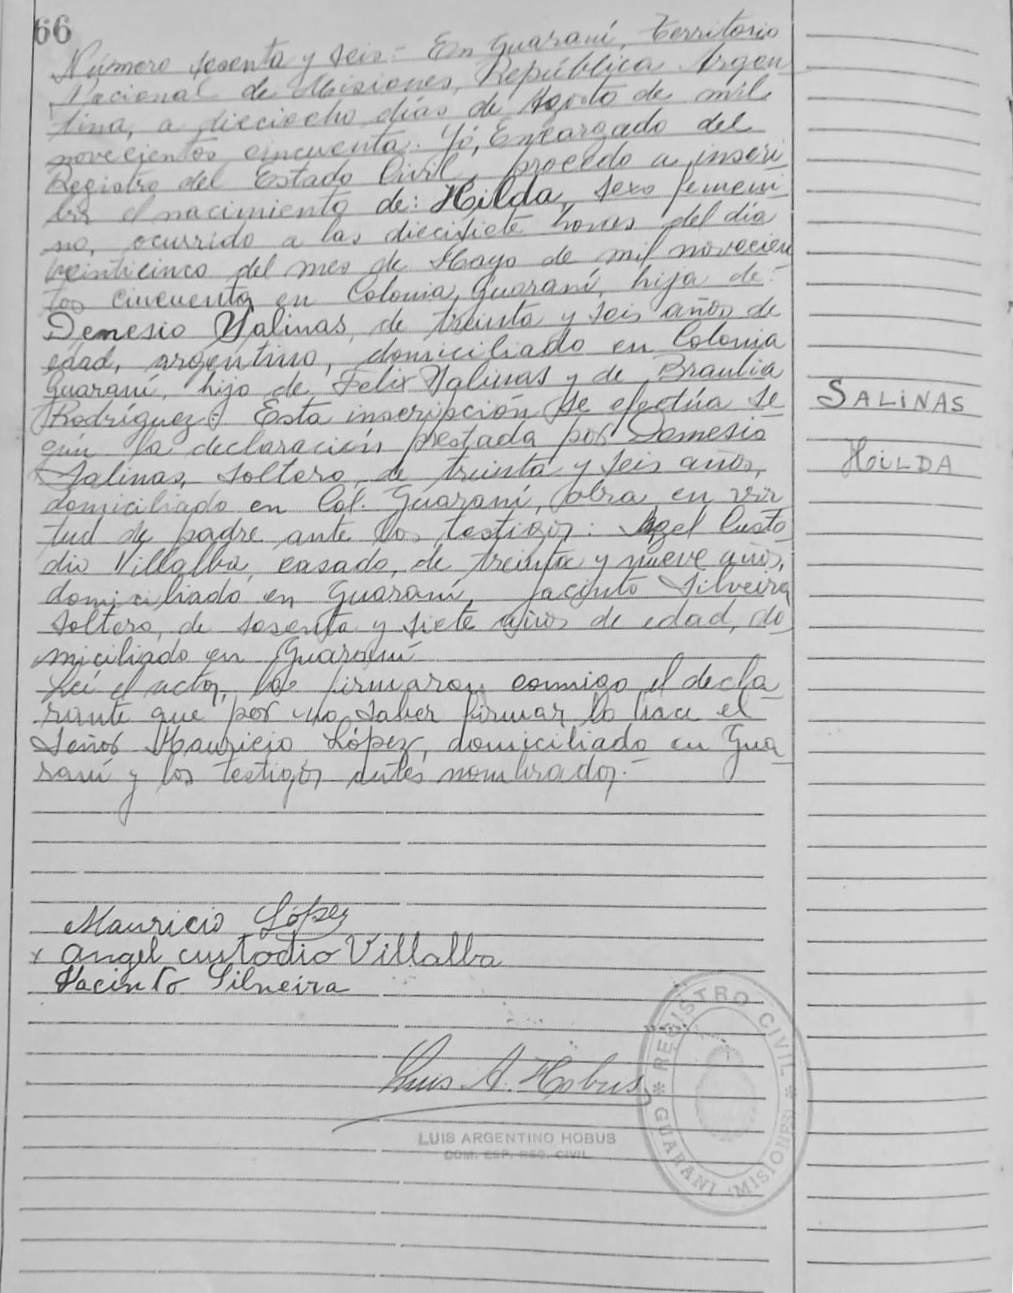 66
Número sesenta y seis.- En Guaraní, Territorio
Nacional de Misiones, República Argen
tina, a dieciocho días de Agosto de mil
novecientos cincuenta. Yo, Encargado del
Registro del Estado Civil, procedo a inscri
bir el nacimiento de: Hilda, sexo femeni
no, ocurrido a las diecisiete horas del día
veinticinco del mes de Mayo de mil novecien
tos cincuenta en Colonia Guaraní, hija de:
Demesio Salinas, de treinta y seis años de
edad, argentino, domiciliado en Colonia
Guaraní, hijo de Felix Salinas y de Braulia
Rodríguez. Esta inscripción se efectúa se
gún la declaración prestada por Demesio
Salinas, soltero, de treinta y seis años,
domiciliado en Col. Guaraní, obra en vir
tud de padre ante los testigos: Angel Custo
dio Villalba, casado, de treinta y nueve años,
domiciliado en Guaraní, Jacinto Silveira
soltero, de sesenta y siete años de edad, do
miciliado en Guaraní
Leí el acta, la firmaron conmigo el decla
rante que por no saber firmar lo hace el
Señor Mauricio López, domiciliado en Gua
raní y los testigos antes nombrados.-
SALINAS
HILDA
Mauricio López
x angel custodio Villalba
Jacinto Silveira
Luis A. Hobus
LUIS ARGENTINO HOBUS
REGISTRO CIVIL
GUARANI (MISIONES)